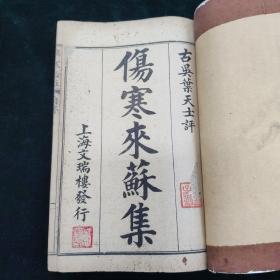 古吳葉天士評
傷寒來蘇集
上海文瑞樓發行